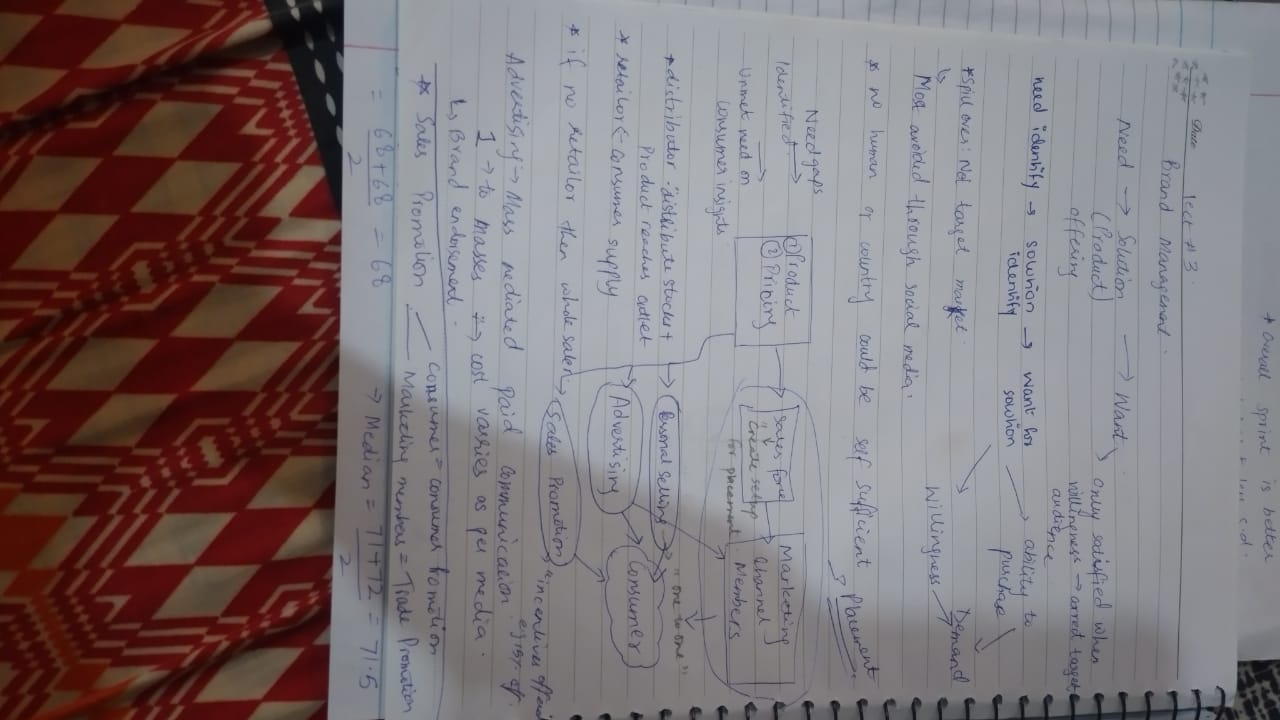 * Overall sprint is better
Date lect #3.
Brand Management.
Need → Solution → Want
(Product)
offering
only satisfied when
willingness → correct target
audience
need identify → solution → want for
identify solution
ability to
purchase
Willingness
Demand
* Spill over: Not target market.
↳ Most avoided through social media.
* no human or country could be self sufficient
→ Placement
Need gaps
Identified
Unmet need on
consumer insights
① Product
② Pricing
Sales force
"Create setup
for placement
Marketing
Channel
Members
* distributor: distribute stocks +
Product reaches outlet
* retailor ← consumer supply
* if no retailor then whole saler.
Personal Selling → "one to one"
Advertising
Consumer
Sales Promotion
"incentives offered
Advertising → Mass mediated paid communication
1 → to masses → cost varries as per media.
↳ Brand endorsement.
* Sales Promotion
Consumer = consumer promotion
Marketing members = Trade Promotion
= 68+68 / 2 = 68
→ Median = 71+72 / 2 = 71.5